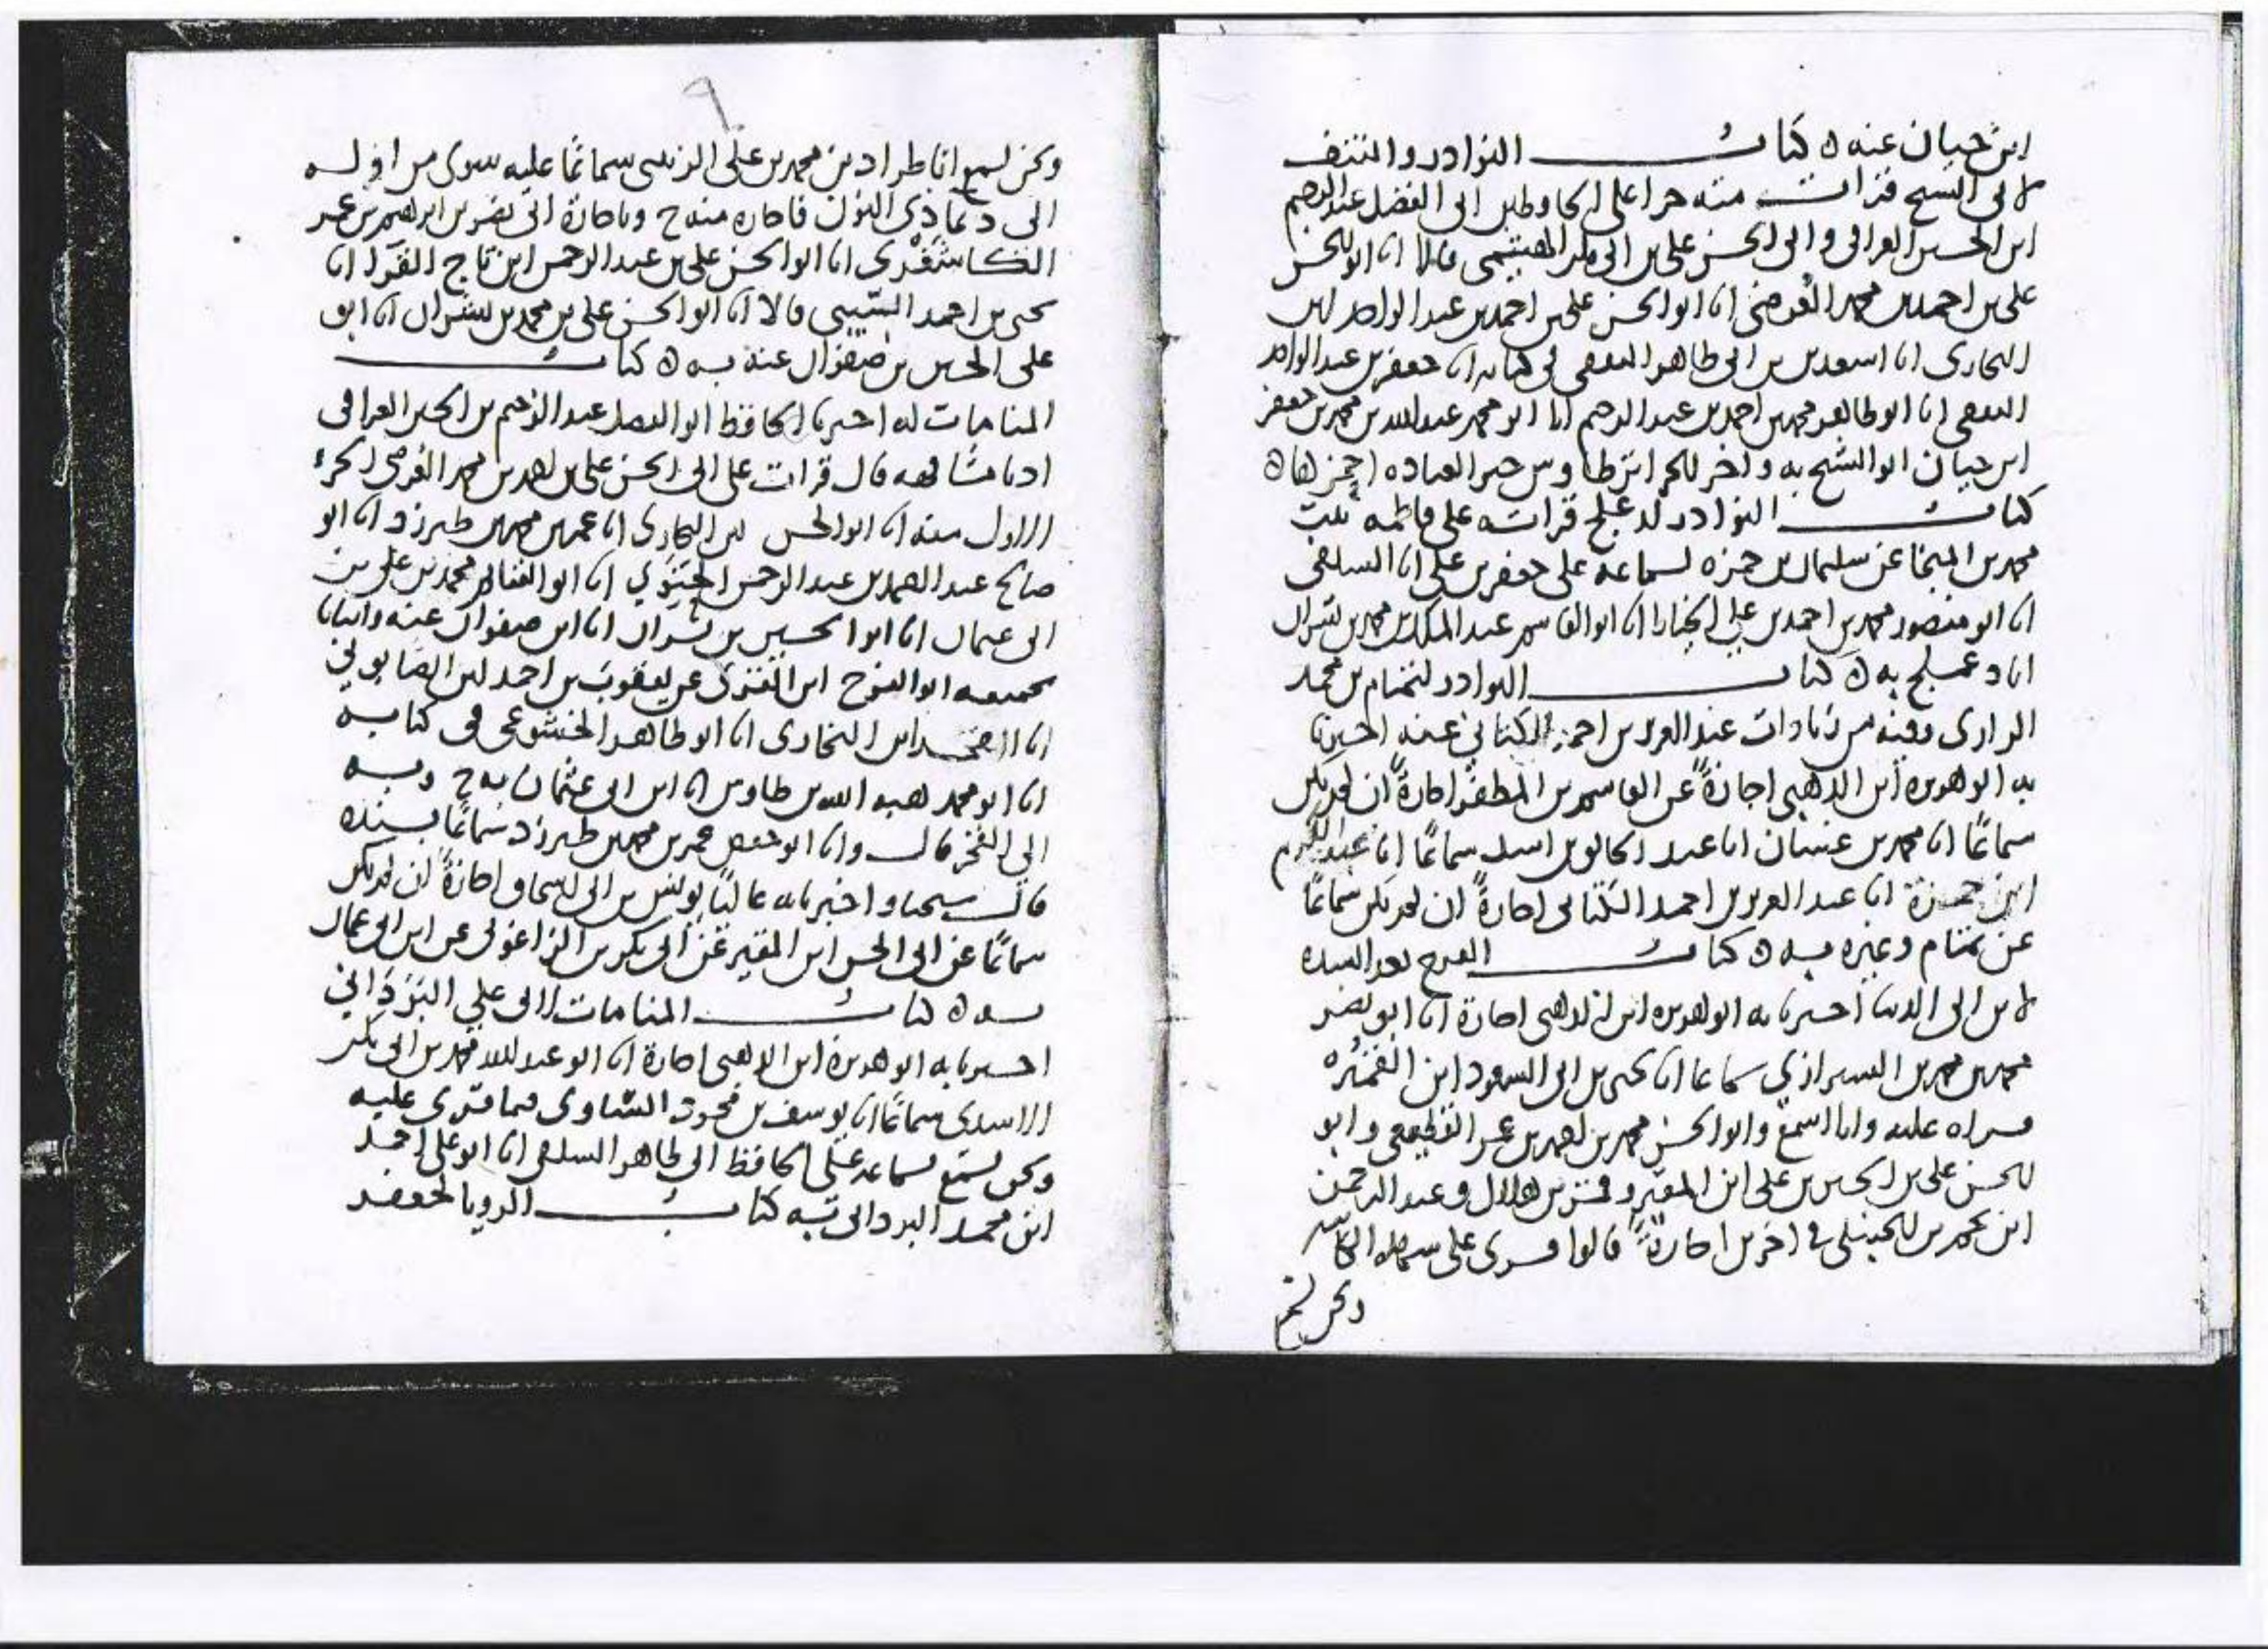 ابن حيان عنه ه كتاب النوادر والنتف
لابي الشيخ قرات منه جزا على الحافظين ابي الفضل عبد الرحيم
ابن الحسين العراقي وابي الحسن علي بن ابي بكر الهيثمي قالا انا ابو الحسن
علي بن احمد بن محمد العُرضي انا ابو الحسن علي بن احمد بن عبد الواحد ابن
البخاري انا اسعد بن ابي طاهر الثقفي في كتابه انا جعفر بن عبد الواحد
الثقفي انا ابو طاهر محمد بن احمد بن عبد الرحيم انا ابو محمد عبد الله بن محمد بن جعفر
ابن حيان ابو الشيخ به واخر الجزء اثر طاوس خير العباده اخفها ه
كتاب النوادر لدعلج قراته على فاطمه بنت
محمد بن المنجا عن سليمان بن حمزه بسماعه على جعفر بن علي انا السلفي
انا ابو منصور محمد بن احمد بن علي الخياط انا ابو القاسم عبد الملك بن محمد بن بشران
انا دعلج به ه كتاب النوادر لتمتام بن محمد
الرازي وفيه من زيادات عبد العزيز بن احمد الكتاني عنه اخبرنا
به ابو هريرة ابن الذهبي اجازةً عن القاسم بن المظفر اجازةً ان لم يكن
سماعًا انا محمد بن غسان انا عبد الخالق بن اسد سماعًا انا عبد الكريم
ابن حمزة انا عبد العزيز بن احمد الكتاني اجازةً ان لم يكن سماعًا
عن تمتام وغيره به ه كتاب الفرج بعد الشده
لابن ابي الدنيا اخبرنا به ابو هريره ابن الذهبي اجازة انا ابو نصر
محمد بن محمد بن الشيرازي سماعا انا يحيى بن ابي السعود ابن القُمَيْرَه
قراه عليه وانا اسمع وابو الحسن محمد بن احمد بن عمر القطيعي وابو
الحسن علي بن الحسين بن علي ابن المقير و بن هلال وعبد الرحمن
ابن محمد بن الحنبلي في اخرين اجازةً قالوا قرئ على شهده الكاتبه
ونحن نسمع
٩
ونحن نسمع انا طراد بن محمد بن علي الزينبي سماعًا عليه سوى من اوله
الى دعا ذي النون فاجازه منه ح وباجازة ابي نصر بن ابراهيم بن عمر
الكاشْغَرْي انا ابو الحسن علي بن عبد الرحمن ابن تاج القرآ انا
يحيى بن احمد السِّيبي قالا انا ابو الحسن علي بن محمد بن بشران انا ابو
علي الحسين بن صفوان عنه به ه كتاب
المنامات له اخبرنا الحافظ ابو الفضل عبد الرحيم بن الحسين العراقي
اذنا مشافهه قال قرات على ابي الحسن علي بن احمد بن محمد العرضي الجزء
الاول منه انا ابو الحسن ابن البخاري انا عمر بن محمد بن طبرزد انا ابو
صالح عبد الصمد بن عبد الرحمن الحَنَوِي انا ابو الغنائم محمد بن علي بن
ابي عثمان انا ابو الحسين بن بشران انا ابن صفوان عنه وانبانا
بجميعه ابو الفرج ابن الغزي عن يعقوب بن احمد ابن الصابوني
انا الفخر ابن البخاري انا ابو طاهر الخشوعي في كتابه
انا ابو محمد هبه الله بن طاوس انا ابن ابي عثمان به ح وبه
الى الفخر قال وانا ابو حفص عمر بن محمد بن طبرزد سماعًا بسنده
قال شيخنا واخبرنا به عاليًا يونس بن ابي اسحاق اجازةً ان لم يكن
سماعًا عن ابي الحسن ابن المقير عن ابي بكر بن الزاغوني عن ابن ابي عثمان
به ه كتاب المنامات لابي علي البَرَدَاني
اخبرنا به ابو هريرة ابن الذهبي اجازة انا ابو عبد الله محمد بن ابي بكر
الاسدي سماعًا انا يوسف بن محمود الساوي فيما قرئ عليه
ونحن نسمع بسماعه على الحافظ ابي طاهر السلفي انا ابو علي احمد
ابن محمد البرداني به كتاب الرويا لجعفر